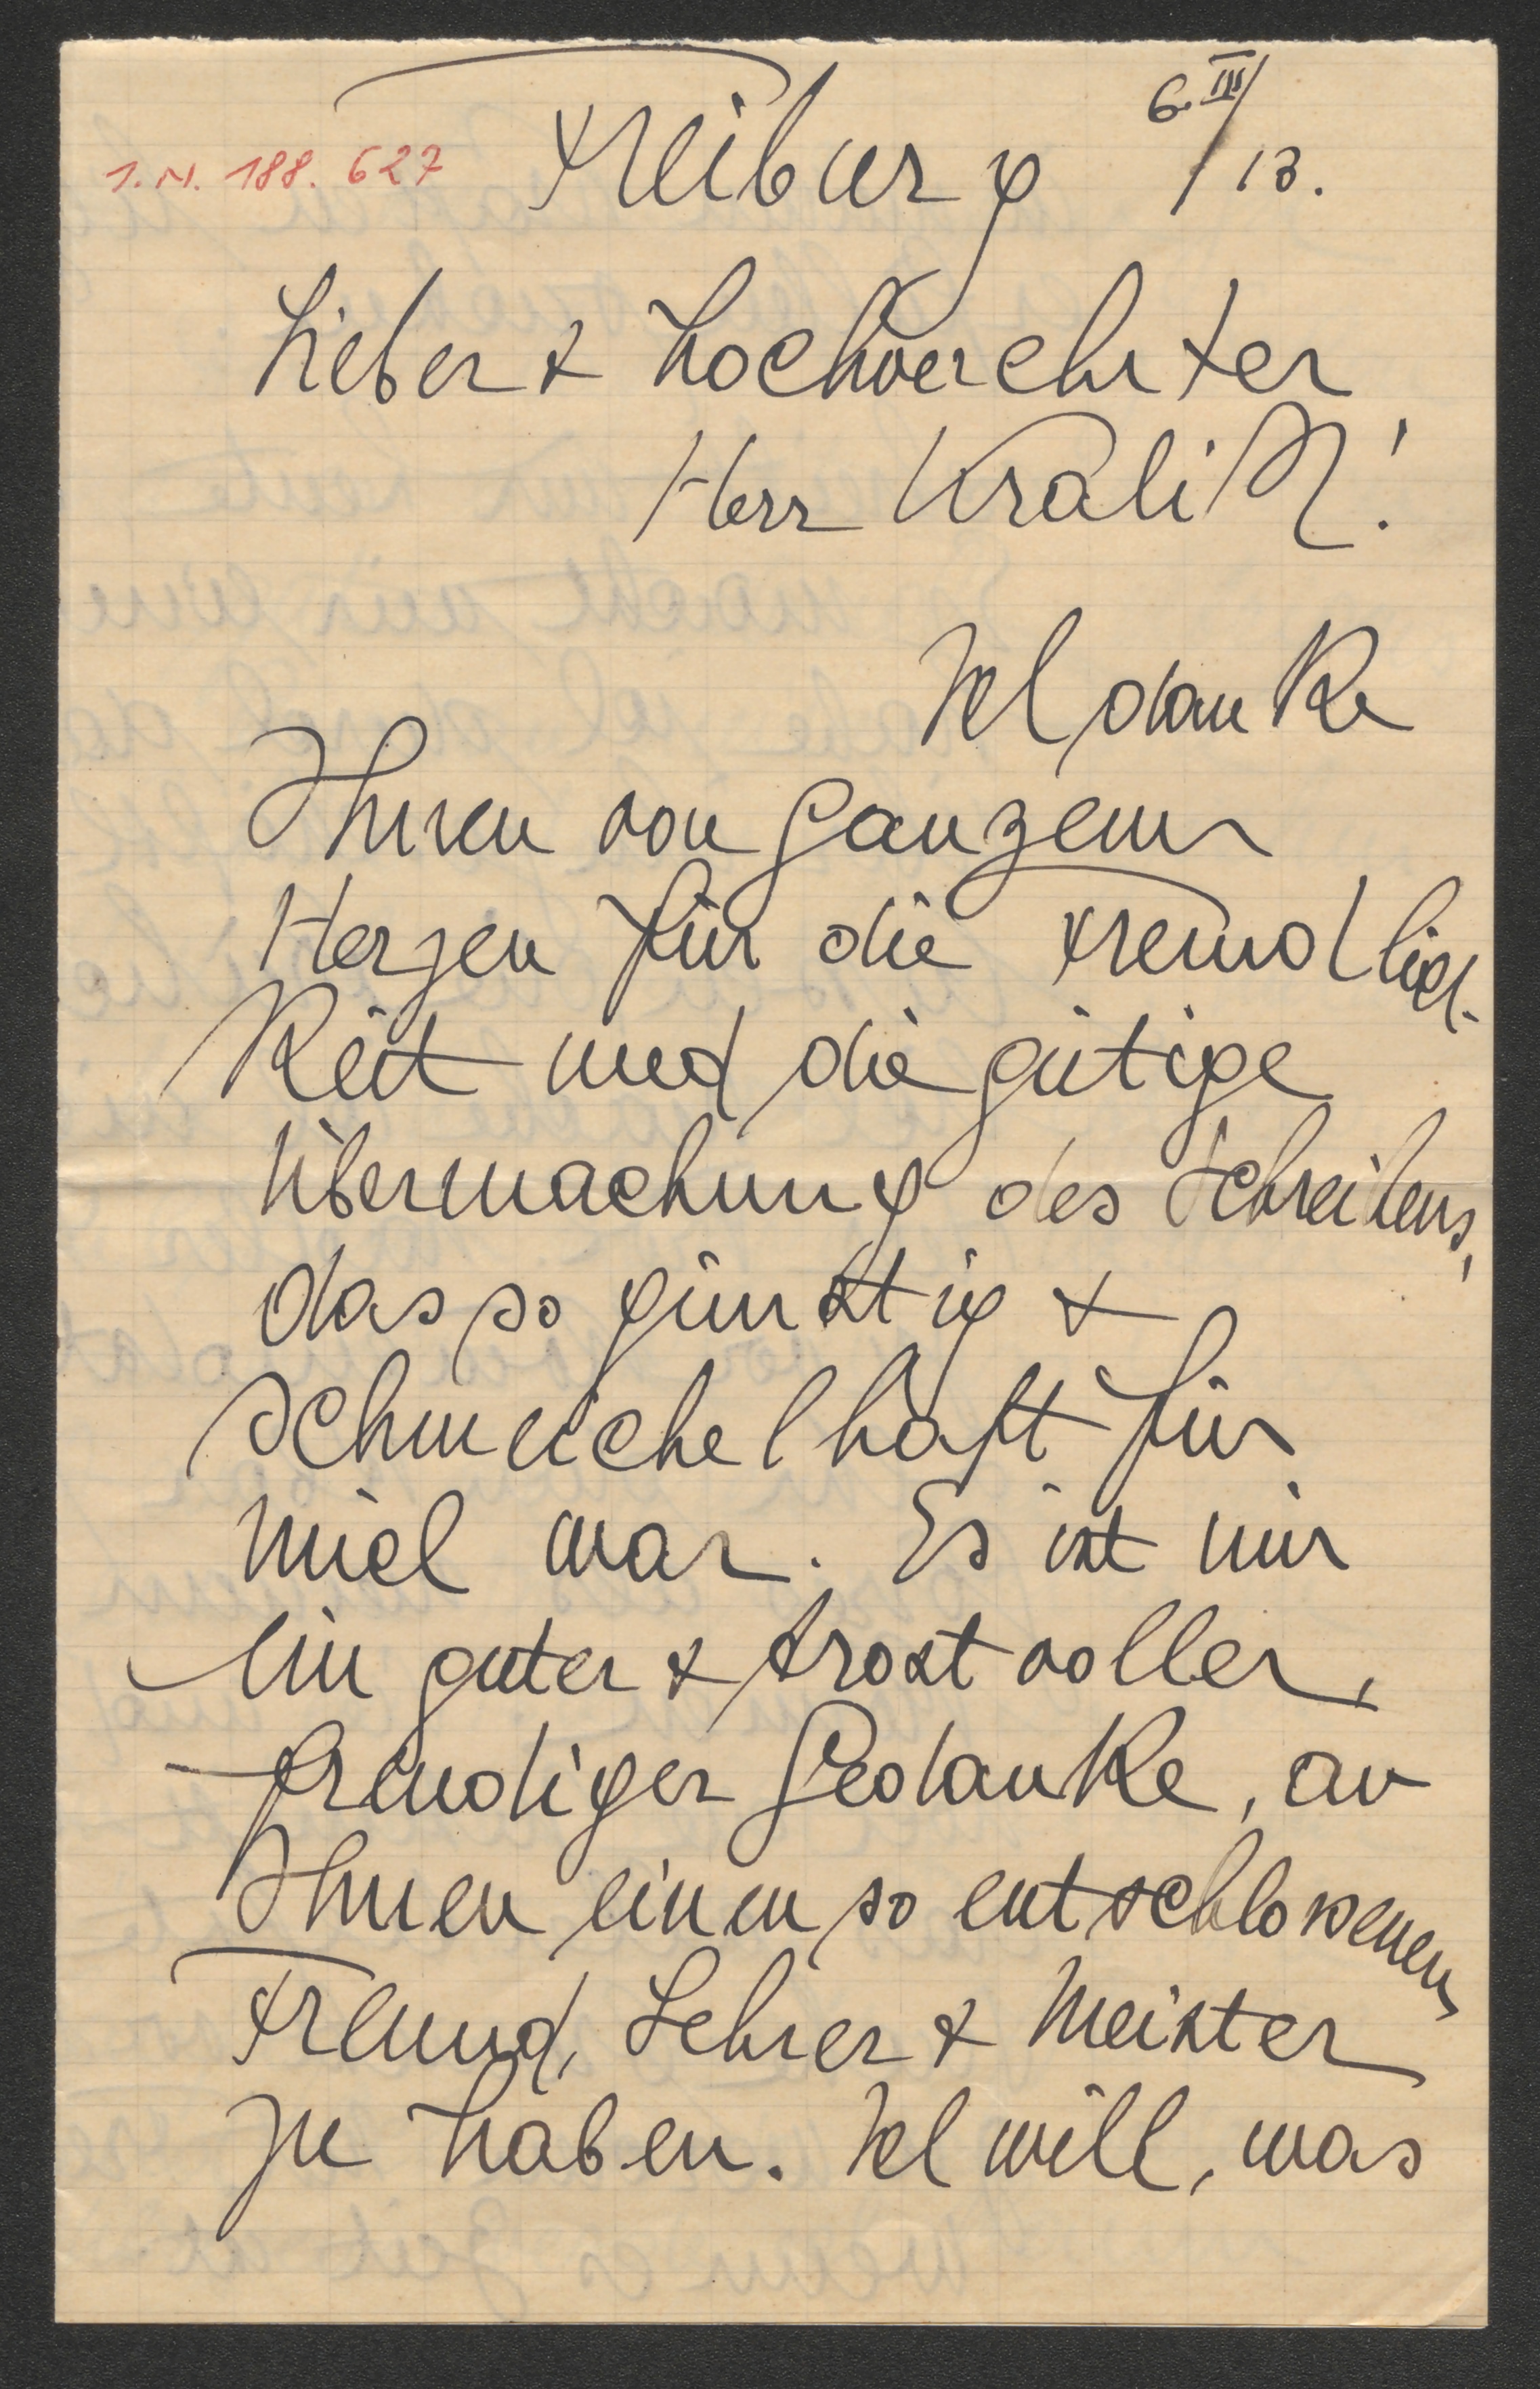 6. III / 13.
I.N. 188.627
Freiburg
Lieber & hochverehrter
Herr Kralik!
Ich danke
Ihnen von ganzem
Herzen für die Freundlich-
keit und die gütige
Übermachung des Schreibens,
das so günstig &
schmeichelhaft für
mich war. Es ist mir
ein guter & trostvoller,
freudiger Gedanke, an
Ihnen einen so entschlossenen
Freund, Lehrer & Meister
zu haben. Ich will, was